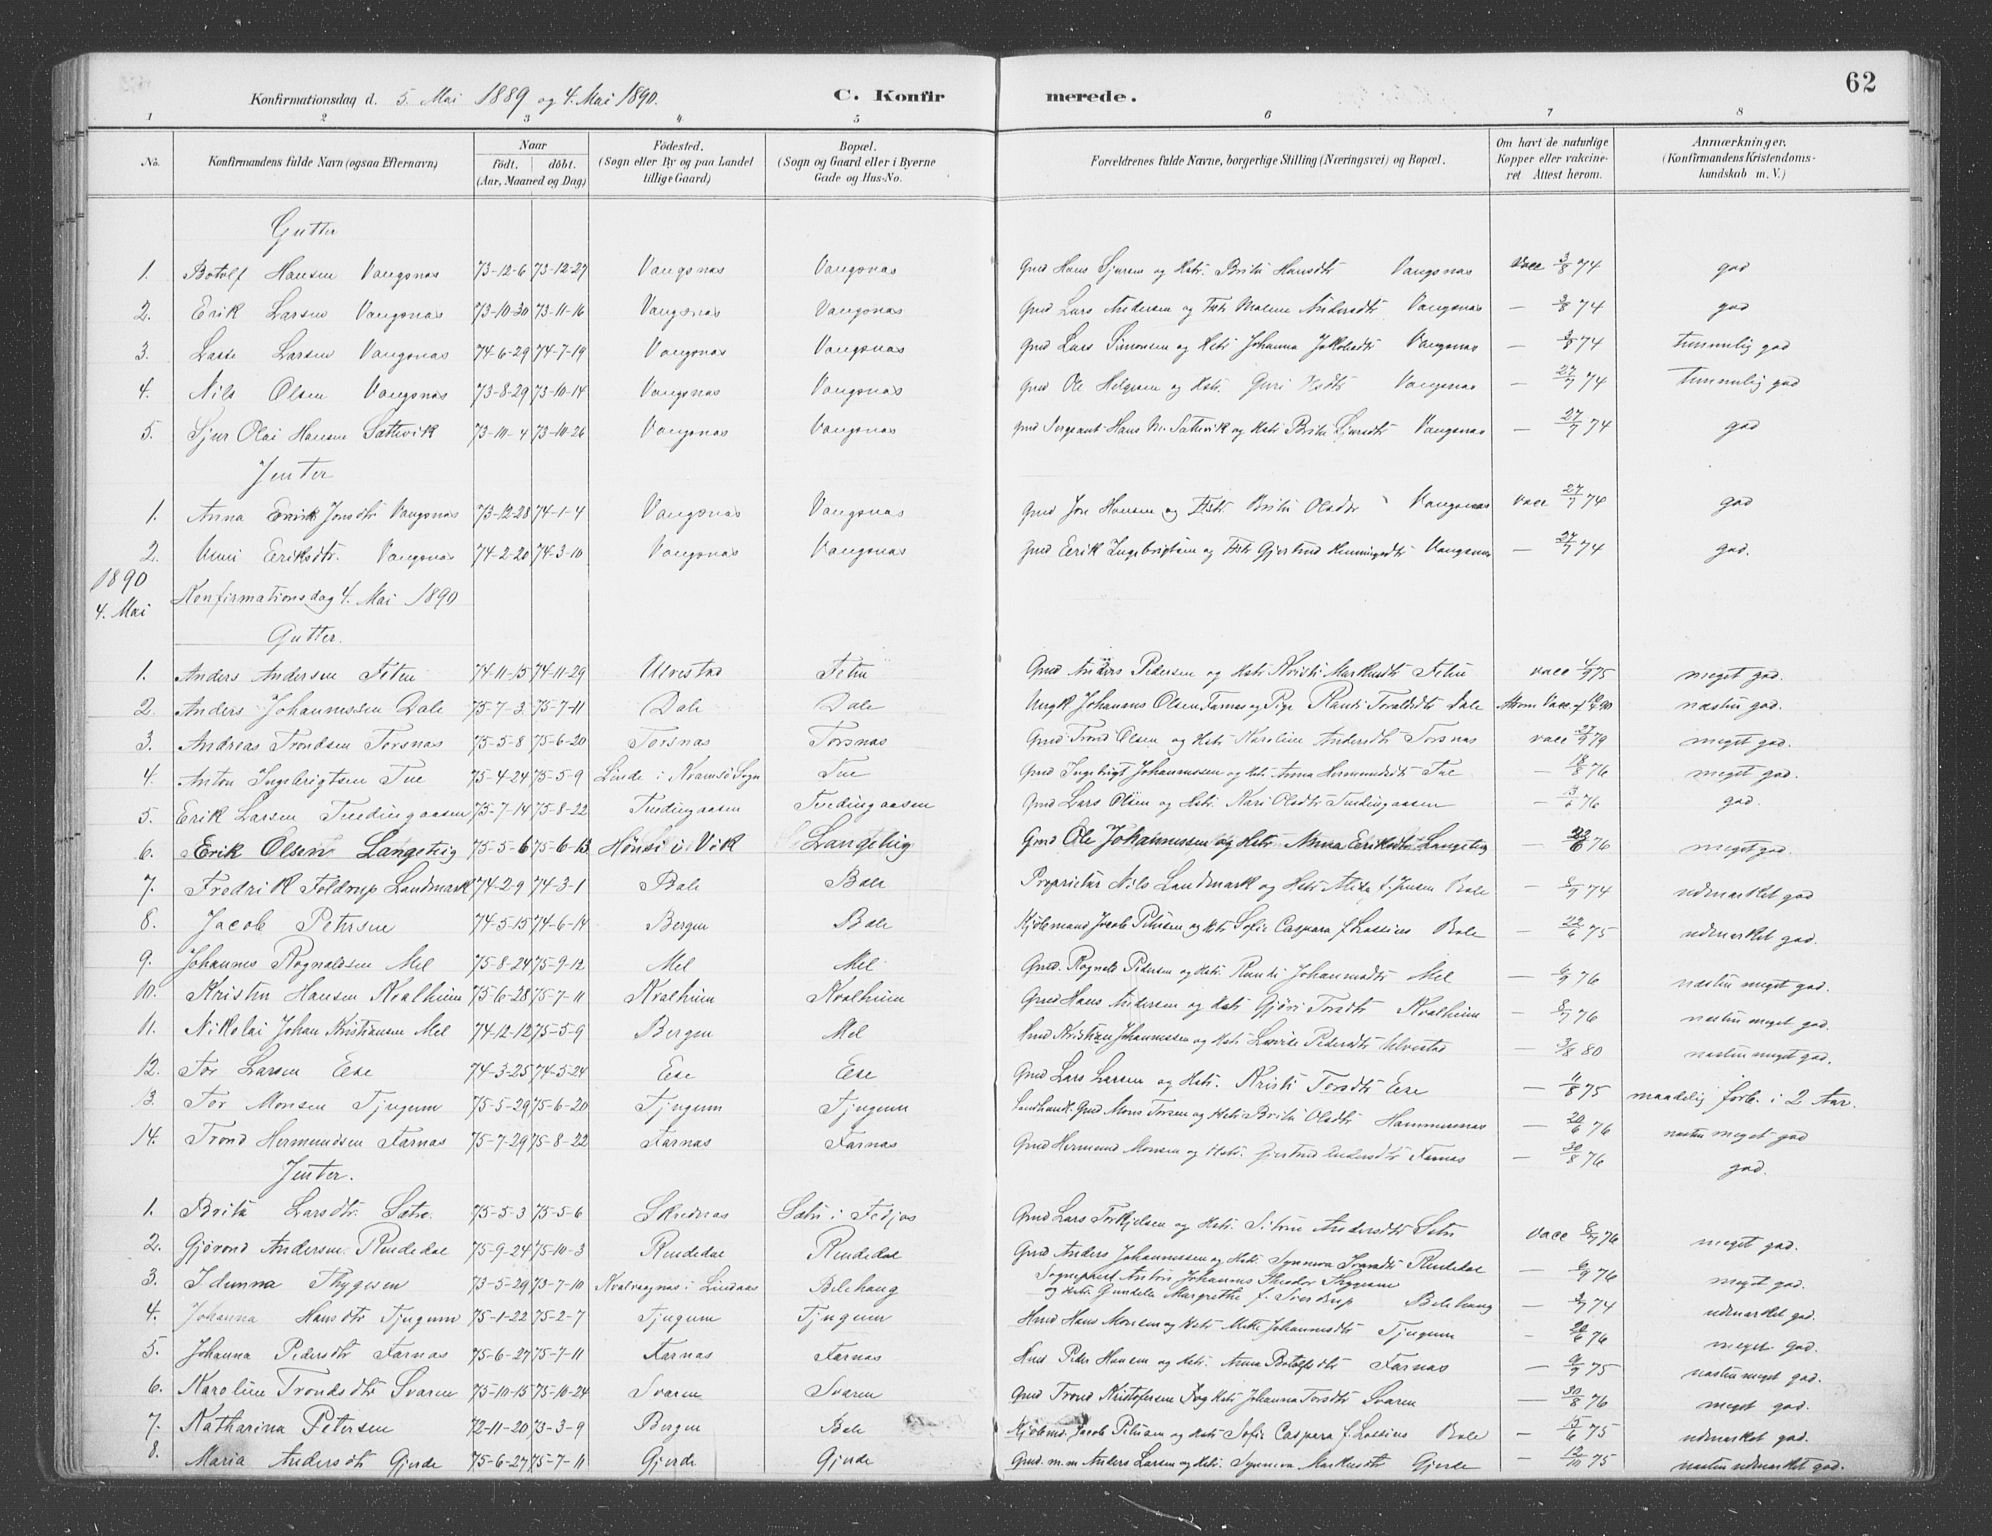 62
Konfirmationsdag d. 5. Mai 1889 og 4. Mai 1890. C. Konfirmerede.
1 2 3 4 5 6 7 8
No. Konfirmandens fulde Navn (ogsaa Efternavn) Naar født. døbt. (Aar, Maaned og Dag) Fødested. (Sogn eller By og paa Landet tillige Gaard) Bopæl. (Sogn og Gaard eller i Byerne Gade og Hus-No. Forældrenes fulde Navne, borgerlige Stilling (Næringsvei) og Bopæl. Om havt de naturlige Kopper eller vakcineret. Attest herom. Anmærkninger. (Konfirmandens Kristendomskundskab m. V.)
Gutter
1. Botolf Hansen Vangsnæs 73-12-6 73-12-27 Vangsnæs Vangsnæs Gmd Hans Sjursen og Hstr. Brita Hansdtr Vangsnæs Vacc 3/8 74 god
2. Erik Larsen Vangsnæs 73-10-30 73-11-16 Vangsnæs Vangsnæs Gmd Lars Andersen og Hstr Malene Andersdtr Vangsnæs — 3/8 74 god
3. Lasse Larsen Vangsnæs 74-6-29 74-7-19 Vangsnæs Vangsnæs Gmd Lars Simonsen og Hstr Johanna Jakobsdtr Vangsnæs — 3/8 74 temmelig god
4. Nils Olsen Vangsnæs 73-8-29 73-10-14 Vangsnæs Vangsnæs Gmd Ole Helgesen og Hstr. Guri Vangsnæs — 27/7 74 temmelig god
5. Sjur Olai Hansen Sættevik 73-10-4 73-10-26 Vangsnæs Vangsnæs Gmd Sergeant Hans N. Sættevik og Hstr Brita Sjursdtr Vangsnæs — 27/7 74 god
Jenter
1. Anna Jonsdtr Vangsnæs 73-12-28 74-1-4 Vangsnæs Vangsnæs Gmd Jon Hansen og Hstr Brita Olsdtr Vangsnæs Vacc 27/7 74 god
2. Unni Eriksdtr. Vangsnæs 74-2-20 74-3-10 Vangsnæs Vangsnæs Gmd Erik Ingebrigtsen og Hstr Gjertrud Henningsdtr Vangsnæs — 27/7 74 god.
1890
4. Mai Konfirmationsdag 4. Mai 1890
Gutter.
1. Anders Andersen Feten 74-11-15 74-11-29 Ulvestad Feten Gmd Anders Pedersen og Hstr Kristi Markusdtr Feten Vacc 4/9 75 meget god.
2. Anders Johannessen Dale 75-7-3 75-7-11 Dale Dale Ungk Johannes Olsen Farnæs og Pige Ranti Toraldsdtr Dale Vacc 90 næsten god.
3. Andreas Trondsen Torsnæs 75-5-8 75-6-20 Torsnæs Torsnæs Gmd Trond Olsen og Hstr Karoline Andersdtr Torsnæs Vacc 27/9 79 meget god.
4. Anton Ingebrigtsen Tue 75-4-24 75-5-9 Linde i Kvamsø Sogn Tue Gmd Ingebrigt Johannessen og Hstr Anna Hermundsdtr Tue — 18/8 76 meget god.
5. Erik Larsen Tredingaasen 75-7-14 75-8-22 Tredingaasen Tredingaasen Gmd Lars Olsen og Hstr. Kari Olsdtr Tredingaasen — 3/6 76 god.
6. Erik Olsen Langeteig 75-5-6 75-6-13 Hønsi i Vik Langeteig Gmd Ole Johannessen og Hstr Anna Eriksdtr Langeteig — 76 meget god.
7. Fredrik Foldrup Landmark 74-2-9 74-3-1 Bale Bale Proprietær Nils Landmark og Hstr f. Jensen Bale — 8/9 74 udmærket god
8. Jacob Petersen 74-5-15 74-6-14 Bergen Bale Kjøbmand Jacob Petersen og Hstr Sofie Caspara f. Lossius Bale — 22/6 75 udmærket god.
9. Johannes Rognaldsen Mel 75-8-24 75-9-12 Mel Mel Gmd. Rognald Pedersen og Hstr Randi Johannesdtr Mel — 6/9 76 næsten meget god.
10. Kristen Hansen Kvalheim 75-6-28 75-7-11 Kvalheim Kvalheim Gmd Hans Andersen og Hstr Gjøri Torsdtr Kvalheim — 8/7 76 næsten meget god.
11. Nikolai Johan Kristiansen Mel 74-12-12 75-5-9 Bergen Mel Hmd Kristian Johannessen og Hstr Lovise Pedersdtr Ulvestad — 3/8 80 næsten meget god.
12. Tor Larsen Ese 74-3-25 74-5-24 Ese Ese Gmd Lars Larsen og Hstr. Kristi Torsdtr Ese — 11/8 75 maadelig forb. i 2 Aar.
13. Tor Monsen Tjugum 75-5-29 75-6-20 Tjugum Tjugum Landhandl. Gmd Mons Torsen og Hstr Brita Olsdtr Hammersnæs — 20/6 76 næsten meget god
14. Trond Hermundsen Farnæs 75-7-29 75-8-22 Farnæs Farnæs Gmd Hermund Monsen og Hstr. Gjertrud Andersdtr Farnæs — 30/8 76 god.
Jenter.
1. Brita Larsdtr Sætre 75-5-3 75-5-6 Skrednæs Sætre i Fedjos Gmd Lars Torkjelsen og Hstr. Andersdtr Setre Vacc 8/9 76 meget god.
2. Gjørond Andersen Rendedal 75-9-24 75-10-3 Rendedal Rendedal Gmd Anders Johannessen og Hstr. Synneva Ivarsdtr Rendedal — 6/9 76 meget god.
3. Idunna Thygesen 73-5-29 73-7-10 Kvalvaagnæs i Lindaas Balehaug Sogneprest Anton Johannes Theodor Thygesen og Hstr Gundela Margrethe f. Sverdrup Balehaug — 8/9 74 udmærket god.
4. Johanna Hansdtr Tjugum 75-1-22 75-2-7 Tjugum Tjugum Hmd Hans Monsen og Hstr Mette Johannesdtr Tjugum — 20/6 76 meget god.
5. Johanna Pedersdtr Farnæs 75-6-27 75-7-11 Farnæs Farnæs Hmd Peder Hansen og Hstr. Anna Botolfsdtr Farnæs — 9/9 75 næsten meget god.
6. Karoline Trondsdtr Svaren 75-10-15 75-10-24 Svaren Svaren Gmd Trond Kristofersen og Hstr Johanna Torsdtr Svaren — 30/8 76 meget god.
7. Katharina Petersen 72-11-20 73-3-9 Bergen Bale Kjøbmd. Jacob Petersen og Hstr. Sofie Caspara f. Lossius Bale — 15/6 75 udmærket god.
8. Maria Andersdtr Gjerde 75-6-27 75-7-11 Gjerde Gjerde Gmd. m.m Anders Larsen og Hstr. Synneva Markusdtr Gjerde — 12/11 75 næsten udmærket god.